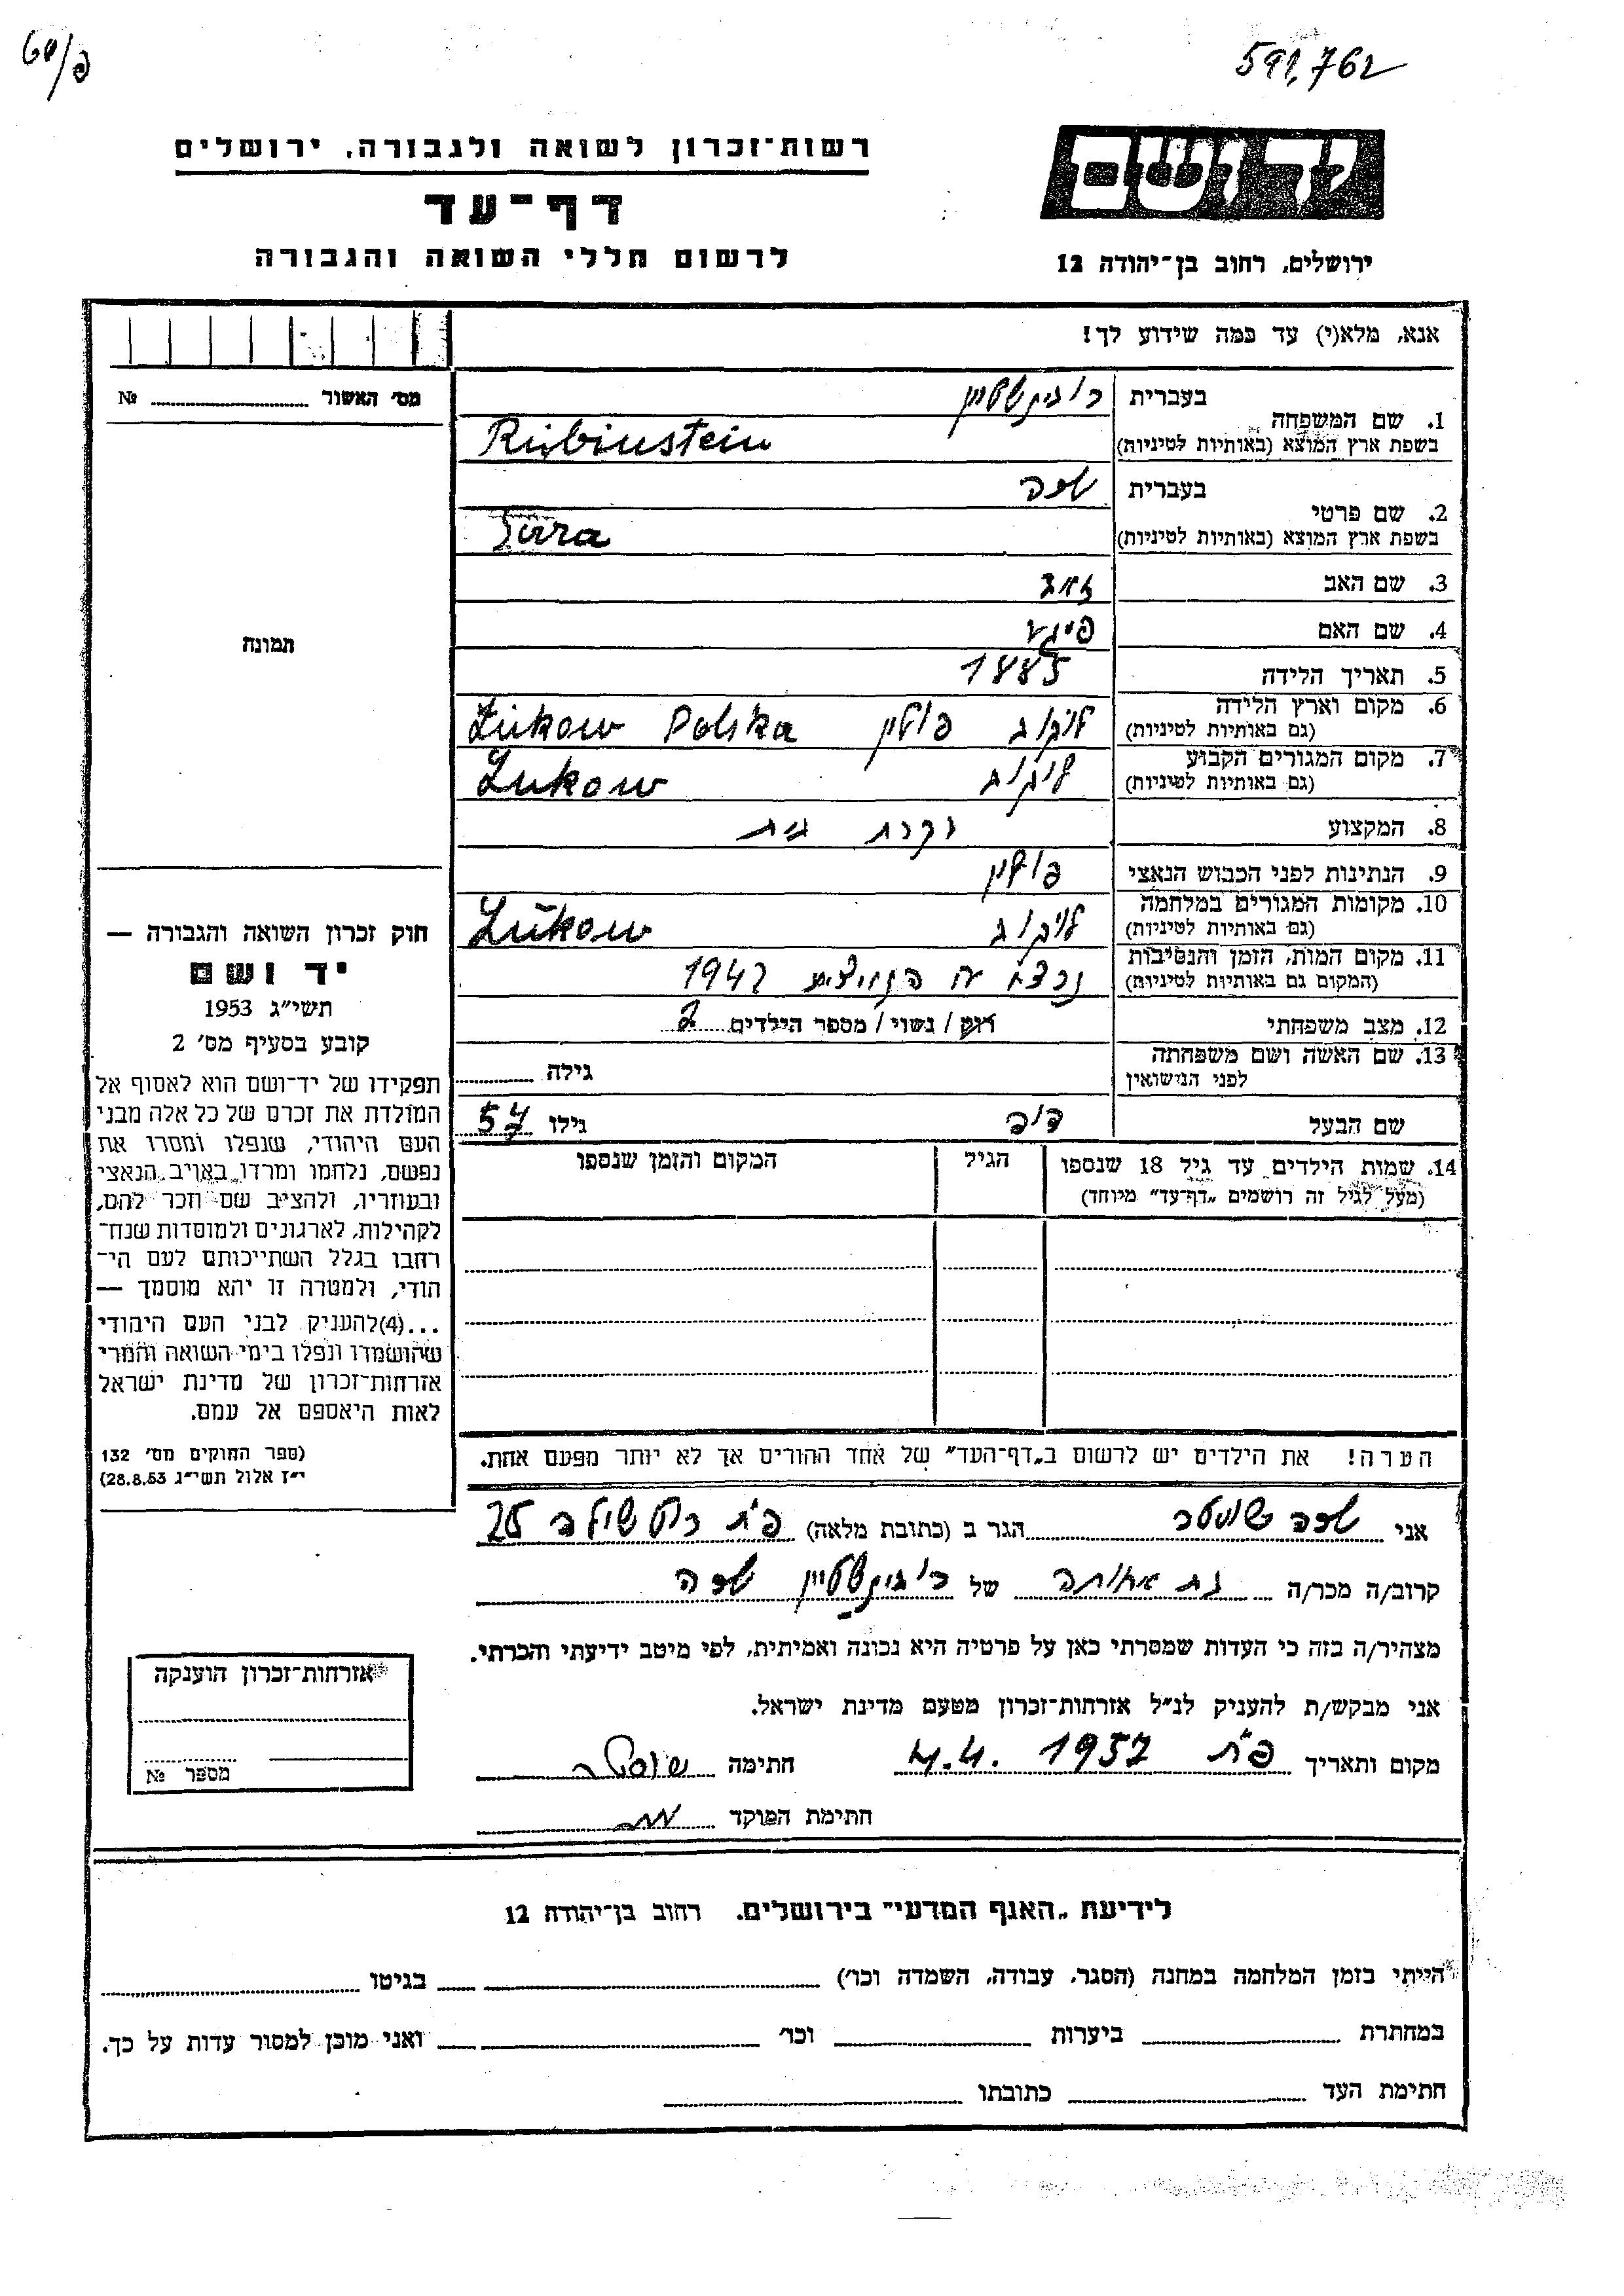 60/פ
591,762
רשות־זכרון לשואה ולגבורה, ירושלים
דף־עד
לרשום חללי השואה והגבורה
יד ושם
ירושלים, רחוב בן־יהודה 12
אנא, מלא(י) עד כמה שידוע לך!
מס' האשור № 
תמונה
1. שם המשפחה בעברית רובינשטיין
בשפת ארץ המוצא (באותיות לטיניות) Rubinstein
2. שם פרטי בעברית שרה
בשפת ארץ המוצא (באותיות לטיניות) Sura
3. שם האב זאב
4. שם האם פייגע
5. תאריך הלידה 1885
6. מקום וארץ הלידה (גם באותיות לטיניות) לוקוב פולין Łukow Polska
7. מקום המגורים הקבוע (גם באותיות לטיניות) לוקוב Łukow
8. המקצוע עקרת בית
9. הנתינות לפני הכבוש הנאצי פולין
10. מקומות המגורים במלחמה (גם באותיות לטיניות) לוקוב Łukow
11. מקום המות, הזמן והנסיבות (המקום גם באותיות לטיניות) 1942
12. מצב משפחתי רווק / נשוי / מספר הילדים 2
13. שם האשה ושם משפחתה לפני הנישואין גילה
שם הבעל גילו 57
14. שמות הילדים עד גיל 18 שנספו הגיל המקום והזמן שנספו
(מעל לגיל זה רושמים „דף־עד" מיוחד)
הערה! את הילדים יש לרשום ב„דף־העד" של אחד ההורים אך לא יותר מפעם אחת.
חוק זכרון השואה והגבורה —
יד ושם
תשי"ג 1953
קובע בסעיף מס' 2
תפקידו של יד־ושם הוא לאסוף אל
המולדת את זכרם של כל אלה מבני
העם היהודי, שנפלו ומסרו את
נפשם, נלחמו ומרדו באויב הנאצי
ובעוזריו, ולהציב שם וזכר להם,
לקהילות, לארגונים ולמוסדות שנח־
רחבו בגלל השתייכותם לעם הי־
הודי, ולמטרה זו יהא מוסמך —
...(4)להעניק לבני העם היהודי
שהושמדו ונפלו בימי השואה והמרי
אזרחות־זכרון של מדינת ישראל
לאות היאספם אל עמם.
(ספר החוקים מס' 132
י"ז אלול תשי"ג 28.8.53)
אני שרה שוסטר הגר ב (כתובת מלאה) פ"ת רוטשילד 25
קרוב/ה מכר/ה בת אחותה של רובינשטיין שרה
מצהיר/ה בזה כי העדות שמסרתי כאן על פרטיה היא נכונה ואמיתית, לפי מיטב ידיעתי והכרתי.
אני מבקש/ת להעניק לנ"ל אזרחות־זכרון מטעם מדינת ישראל.
מקום ותאריך פ"ת 4.4. 1957 חתימה שוסטר
חתימת הפוקד
אזרחות־זכרון הוענקה
מספר №
לידיעת „האגף המדעי" בירושלים. רחוב בן־יהודה 12
הייתי בזמן המלחמה במחנה (הסגר, עבודה, השמדה וכו') בגיטו
במחתרת ביערות וכו' ואני מוכן למסור עדות על כך.
חתימת העד כתובתו